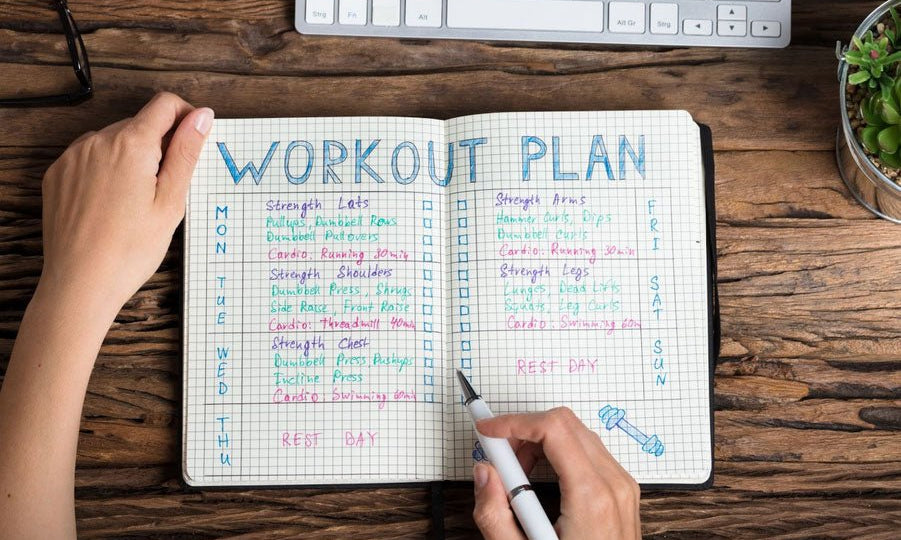 Strg Fn Alt Alt Gr Strg
WORKOUT PLAN
MON
Strength Lats
Pullups, Dumbbell Rows
Dumbbell Pullovers
Cardio: Running 30min
TUE
Strength Shoulders
Dumbbell Press, Shrugs
Side Raise, Front Raise
Cardio: Threadmill 40min
WED
Strength Chest
Dumbbell Press, Pushups
Incline Press
Cardio: Swimming 60min
THU
REST DAY
FRI
Strength Arms
Hammer Curls, Dips
Dumbbell Curls
Cardio: Running 30min
SAT
Strength Legs
Lunges, Dead Lifts
Squats, Leg Curls
Cardio: Swimming 60m
SUN
REST DAY